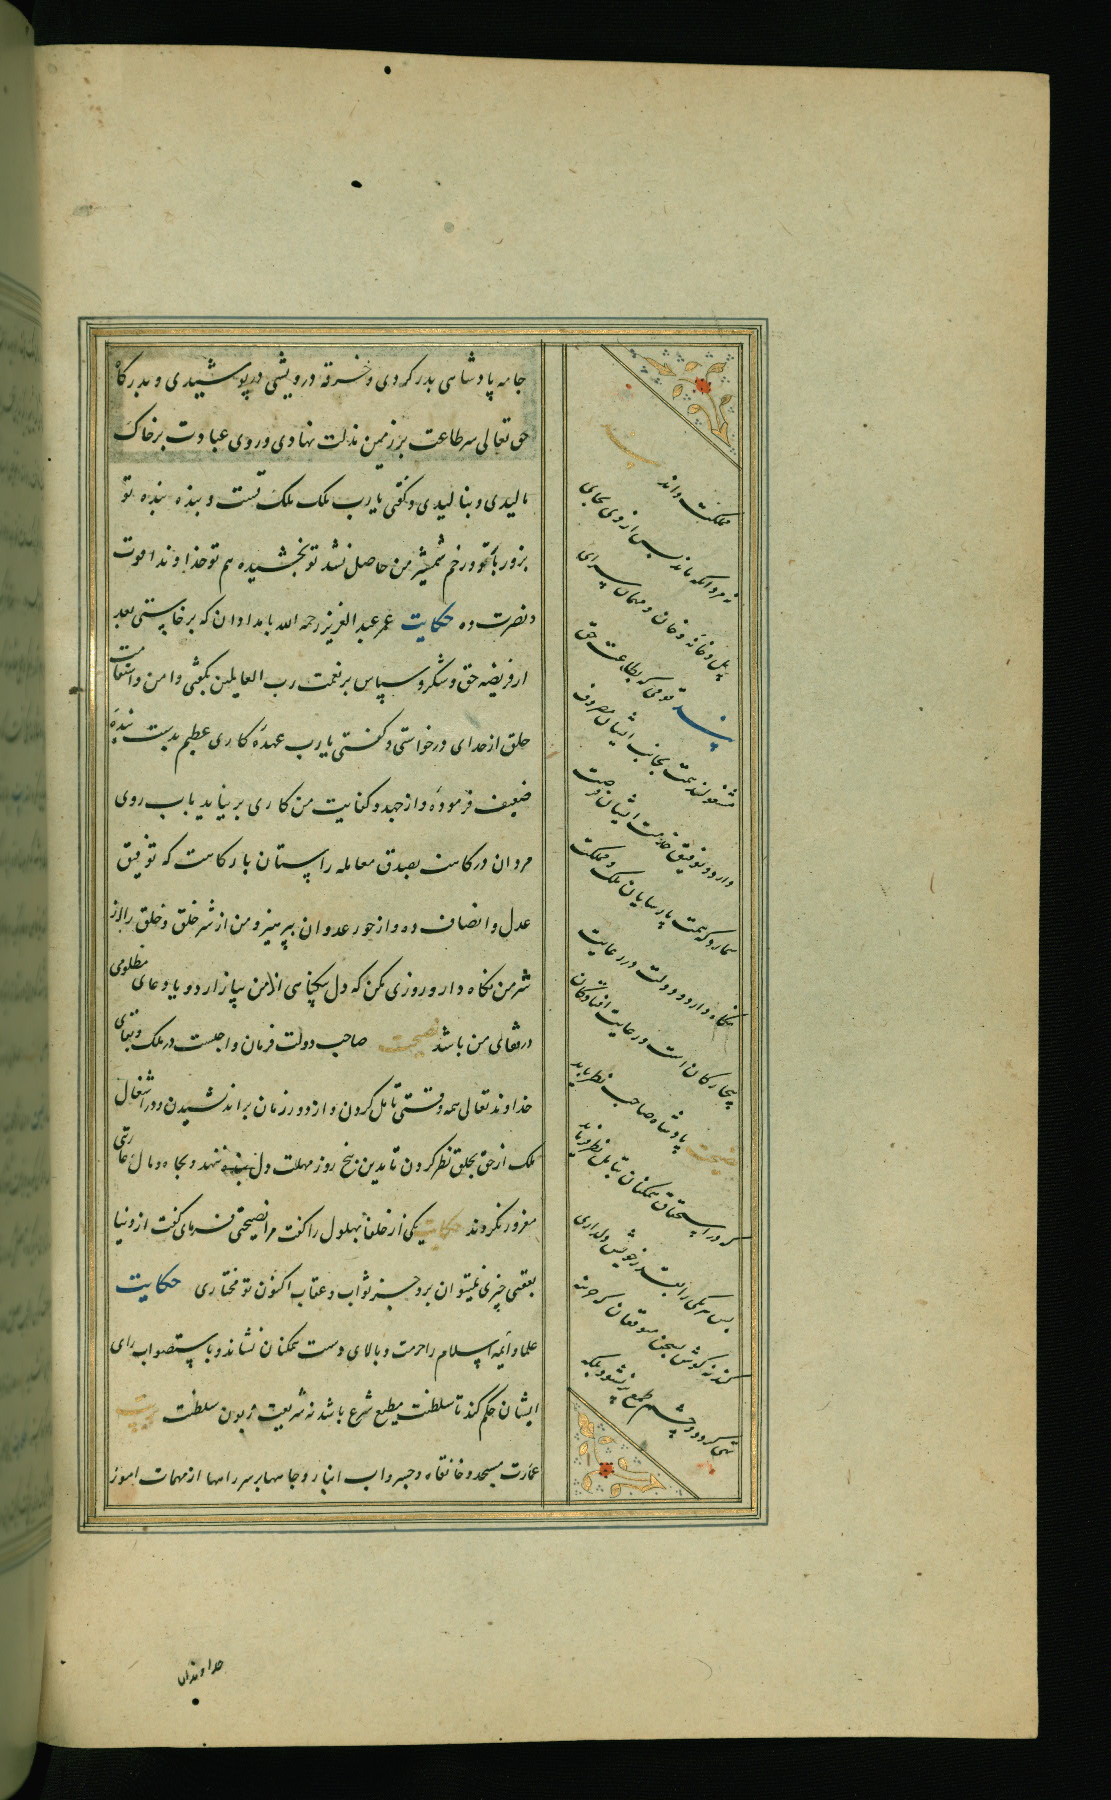 جامه پادشاهی بدر کردی و خرقه درویشی درپوشیدی و بدرگاه
حق تعالی سر طاعت بر زمین مذلت نهادی و روی عبادت بر خاک
مالیدی و بنالیدی و کفتی یا رب ملک ملک تست و بنده بنده تو
بزور بازو و زخم شمشیر من حاصل نشد تو بخشیده هم تو خداوندا قوت
و نصرت ده حکایت عمر عبد العزیز رحمه الله بامدادان که برخاستی بعد
از فریضه حق و شکر و سپاس بر نعمت رب العالمین بکفتی و امن و استقامت
خلق از خدای درخواستی و کفتی یا رب عهده کاری عظیم بدست بنده
ضعیف فرموده و از جهد و کفایت من کاری بر نیاید باب روی
مردان درکاهت بصدق معامله راستان بارکاهت که توفیق
عدل و انصاف ده و از جور عدوان بپرهیز و من از شر خلق و خلق را از
شر من نکاه دار و روزی مکن که دل بیکناهی از من بیازارد و یا دعای مظلومی
در قفای من باشد نصیحت صاحب دولت فرمان واجبست در ملک و بقای
خداوند تعالی همه وقتی تامل کردن و از دور زمان براندیشیدن و در اشغال
ملک از حق بخلق نظر کردن تا بدین پنج روز مهلت دل ننهد و بجاه و مال عاریتی
مغرور نکردند حکایت یکی از خلفا بهلول را کفت مرا نصیحتی فرمای کفت از دنیا
بعقبی چیزی نمیتوان برد جز ثواب و عقاب اکنون تو مختاری حکایت
علما و ائمه اسلام را حرمت و بالای دست همکنان نشاند و باستصواب رای
ایشان حکم کند تا سلطنت مطیع شرع باشد نه شریعت زبون سلطنت
عمارت مسجد و خانقاه و جسر و اب انبار و چاهها بر سر راهها از مهمات امور
مملکت داند
نه مرد انکه ماند پس از وی بجای
پل و خانه و خان و مهمان سرای
پند قومی که بطاعت حق
مشغولند همت بجانب ایشان مصروف
دارد و توفیق خدمت ایشان فرصت
شمارد که همت پارسایان ملک و مملکت
نکاه دارد و دولت در رعایت
بیچارکان است و رعایت افتادکان
نصیحت پادشاه صاحب نظر باید
که در استحقاق همکنان بتامل نظر فرماید
پس هر یکی را بقدر خویش دلداری
کند نه کوش بسخن متوقعان که خزینه
تهی کردد و چشم طمع پر نشود بلکه
خداوندان